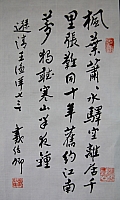 楓葉蕭蕭水驛空離居千
里悵難同十年舊約江南
夢獨聽寒山半夜鐘
王漁洋